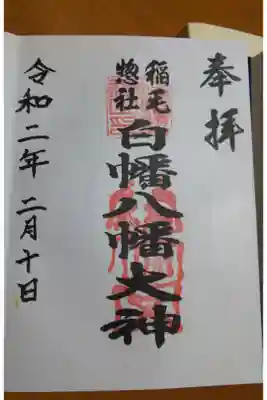 奉拝
稲毛
惣社
白幡八幡大神
令和二年二月十日